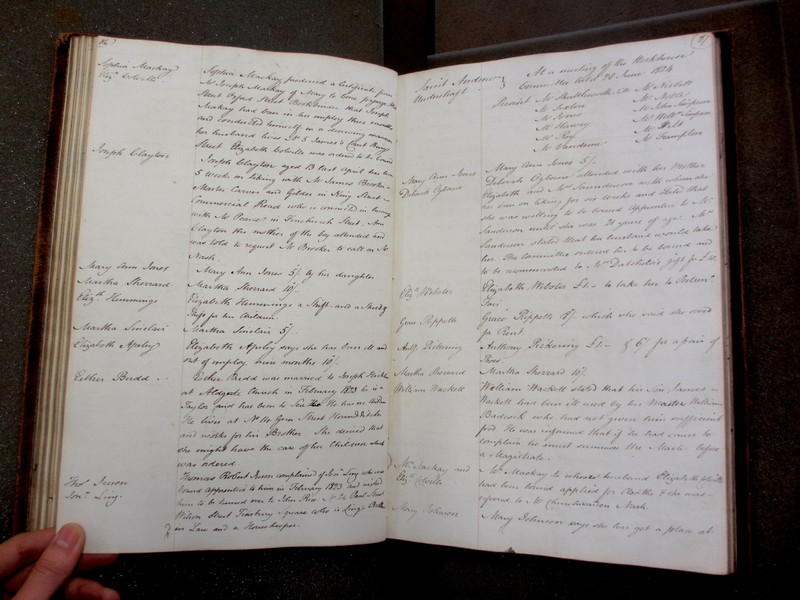 86
Sophia Mackay
Eliz. Colville
Sophia Mackay produced a Certificate from
Mr Joseph Mackay of Mary le bone passage
Street Oxford Street Bookbinder that Joseph
Mackay had been in his employ three months
and conducted himself in a becoming manner
her husband lives No 5 James's Court Bury
Street Elizabeth Colville was ordered to be
Joseph Clayton
Joseph Clayton aged 13 last April has been
5 weeks on liking with Mr James Brooker
Master Carver and Gilder in King Street
Commercial Road who is connected in
with Mr Pearce in Fenchurch Street. Ann
Clayton the mother of the boy attended and
was told to request Mr Brooker to call on Mr
Nash.
Mary Ann Jones
Mary Ann Jones 5/- by her daughter
Martha Sherrard
Martha Sherrard 10/-
Elizth Hemmings
Elizabeth Hemmings a Shift and a
for her children
Martha Sinclair
Martha Sinclair 5/-
Elizabeth Apsley
Elizabeth Apsley says she has been ill and
out of employ nine months 10/-
Esther Budd
Esther Budd was married to Joseph
at Aldgate Church in February 1823 he is a
Taylor and has been to Sea He has no
He lives at No 14 Gun Street Houndsditch
and works for his Brother. She desired that
she might have the care of her Children which
was ordered
Thos Iveson
Jon. Ling.
Thomas Robert Iveson complained of Jon. Ling who was
bound apprentice to him in February 1823 and wished
him to be turned over to John Rix No 24 Paul Street
Wilson Street Finsbury Square who is Ling's Brother
in Law and a Housekeeper.
87
Saint Andrew
Undershaft
At a meeting of the Workhouse
Committee held 28 June 1824
Present
Mr Jones
Mr Harvey
Mr John Simpson
Mr Willm Simpson
Mr Frampton
Mary Ann Jones
Mary Ann Jones 5/-
Deborah Ogbourn
Deborah Ogbourn attended with her Mother
Elizabeth and Mrs Saunderson with whom she
has been on liking for six weeks and stated that
she was willing to be bound Apprentice to Mr
Sanderson until she was 21 years of age. Mrs
Sanderson stated that her husband would take
her. The Committee ordered her to be bound and
to be recommended to Mr Datchelor's gift for
Elizth Webster
Elizabeth Webster £1 - to take her to
Grace Rippeth
Grace Rippeth 8/- which she said she owed
for Rent
Anth. Pickering
Anthony Pickering £1 - & 6/ for a pair of
Shoes
Martha Sherrard
Martha Sherrard 10/-
William Wackett
William Wackett stated that his Son James
Wackett had been ill used by his Master William
Badcock who had not given him sufficient
food. He was informed that if he had cause to
complain he must summon the Master before
a Magistrate.
Mrs Mackay and
Eliz. Colville
Mrs Mackay to whose husband Elizabeth Colville
had been bound applied for Cloaths & she was
referred to Mr Churchwarden Nash.
Mary Johnson
Mary Johnson says she has got a place at